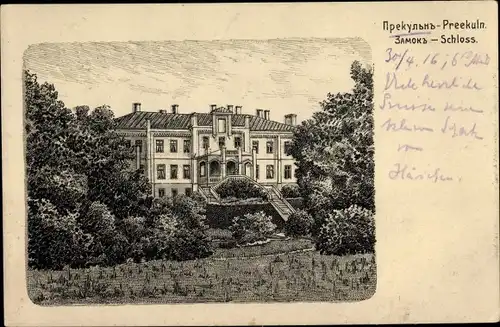 Прекульнъ - Preekuln.
Замокъ — Schloss.
30/4. 16,
Viele herzliche
Grüsse
von
Häschen.